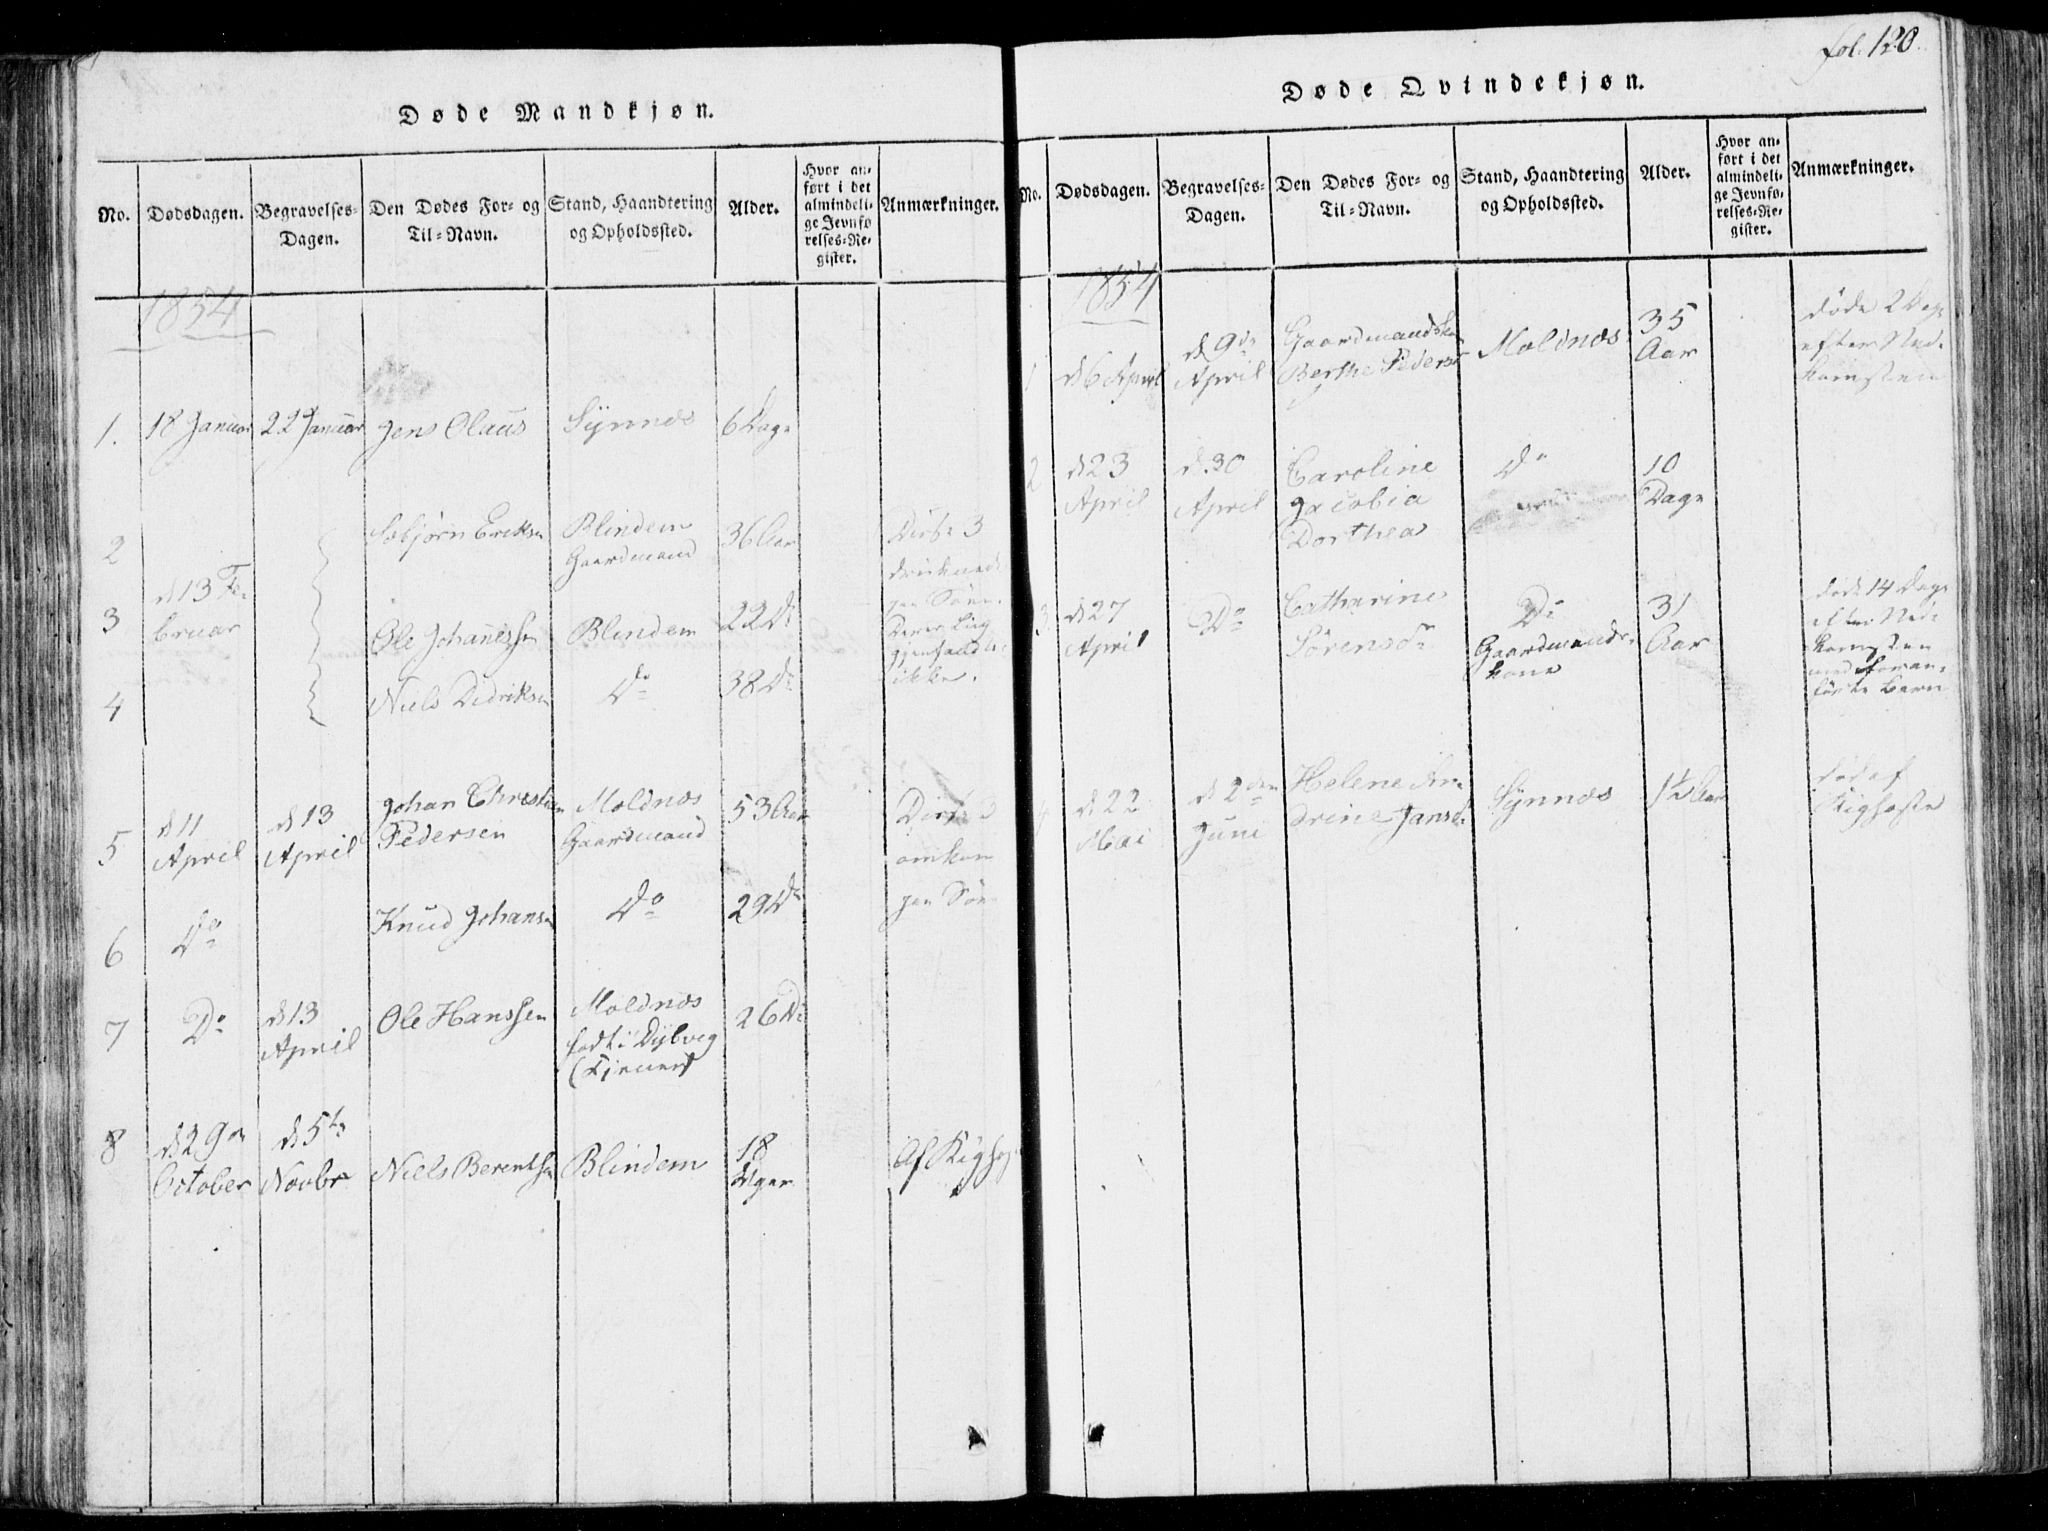 fol. 120.
Døde Mandkjøn.
No.
Dødsdagen.
Begravelses-
Dagen.
Den Dødes For- og
Til-Navn.
Stand, Haandtering
og Opholdssted.
Alder.
Hvor an-
ført i det
almindeli-
ge Jevnfø
relses-Re-
gister.
Anmærkninger.
1854
1. 18 Januar 22 Januar Jens Olaus Synnes 6 Dage
2
Eriksen
Blindem
Gaardmand
36 Aar
Disse 3
3
d 13 Fe-
bruar
Ole Johanessen
Blindem
22 Do
ikke.
4
Niels Didriksen
Do
38 Do
5
d 11
April
d 13
April
Johan Christian
Pedersen
Moldnæs
Gaardmand
53 Aar
Disse 3
omkom
6
Do
Knud Johansen
Do
29 Do
7
Do
d 13
April
Ole Hanssen
Moldnæs
26 Do
8
d 29de
October
d 5te
Novbr
Niels Berentsen
Blindem
18
Uger
Af
Døde Qvindekjøn.
No.
Dødsdagen.
Begravelses-
Dagen.
Den Dødes For- og
Til-Navn.
Stand, Haandtering
og Opholdssted.
Alder.
Hvor an-
ført i det
almindeli-
ge Jevnfø-
relses-Re-
gister.
Anmærkninger.
1854
1
d 6 April
d 9de
April
Berthe Pedersd
Moldnæs
35
Aar
døde 2 Dage
efter Ned-
komsten
2
d 23
April
d. 30
April
Caroline
Jacobia
Dorthea
Do
10
Dage
3
d 27
April
Do
Catharine
Sørensdr
Do
Gaardmands-
kone
31
Aar
døde 14 Dage
efter Ned-
komsten
med foran-
førte Barn
4
d 22
Mai
d 2den
Juni
Helene An-
drine Jansd.
Synnæs
1½ Aar
død af
Kighoste